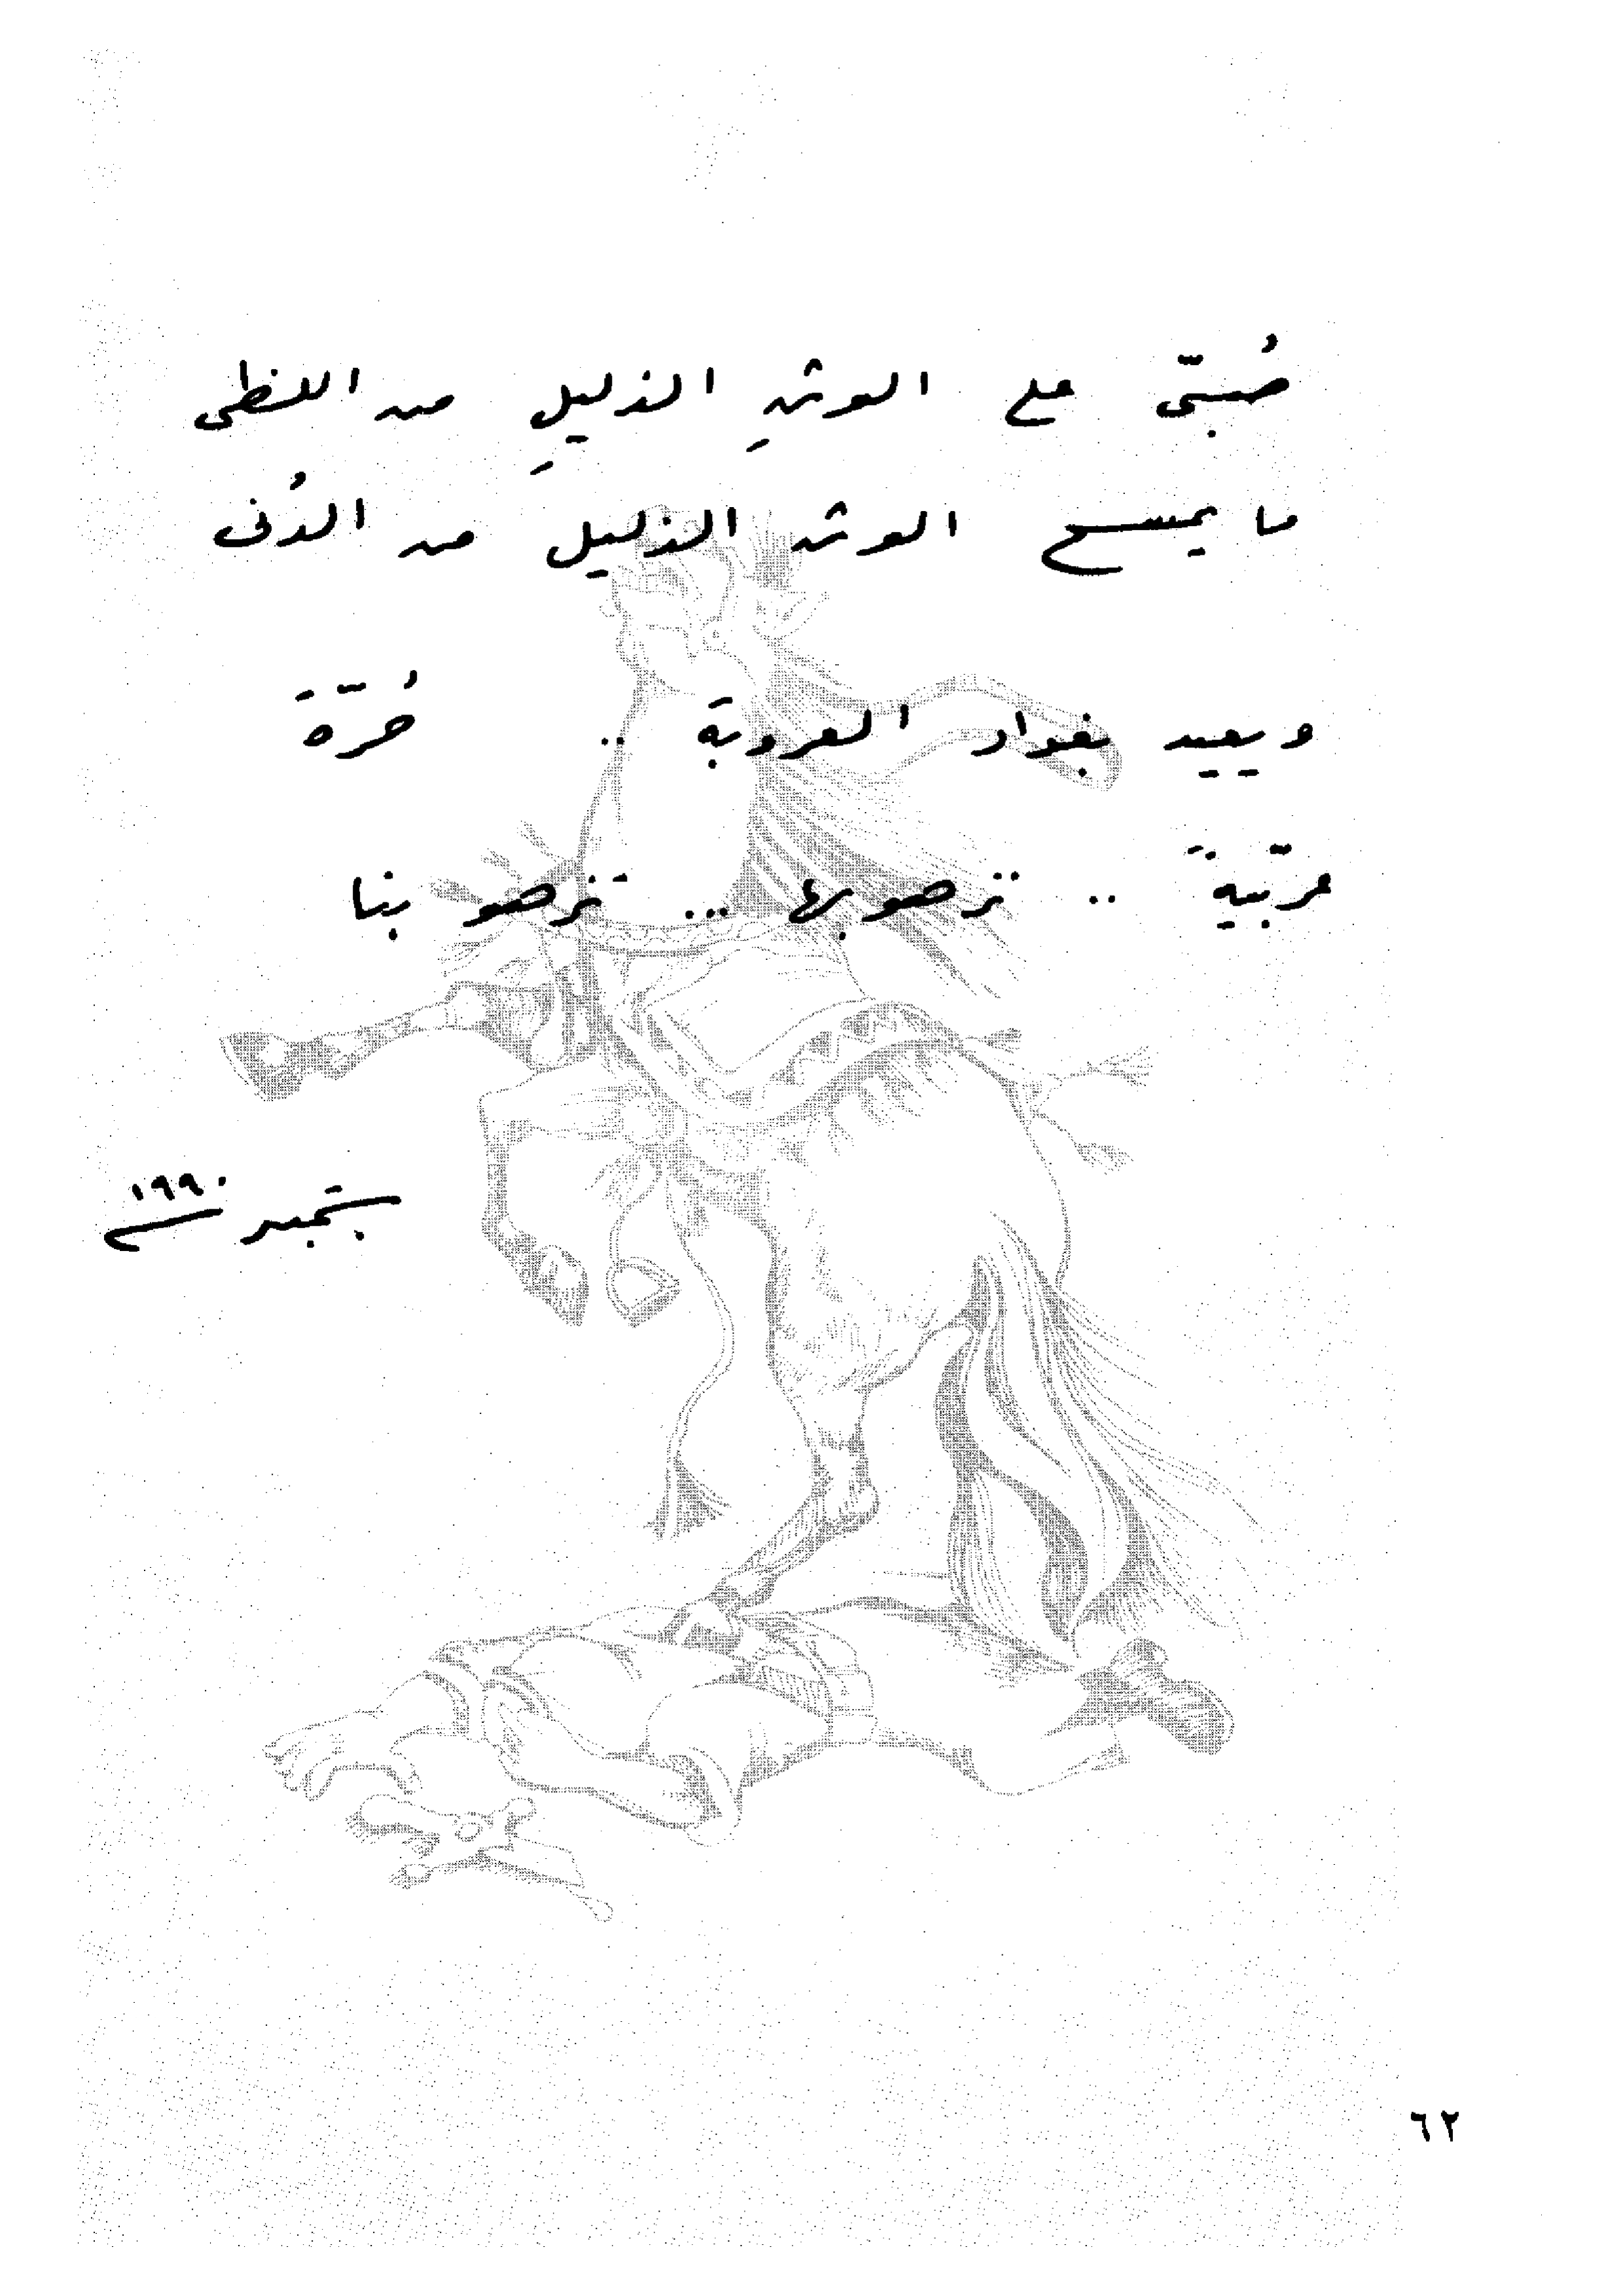 صُبّي على الوثنِ الذليلِ من اللظى
ما يمسح الوثن الذليل من الدُنى
ويعيد بغداد العروبة .. حُرّةً
عربّيةً .. نزهو بها ... تزهو بنا
سبتمبر ١٩٩٠
٦٢